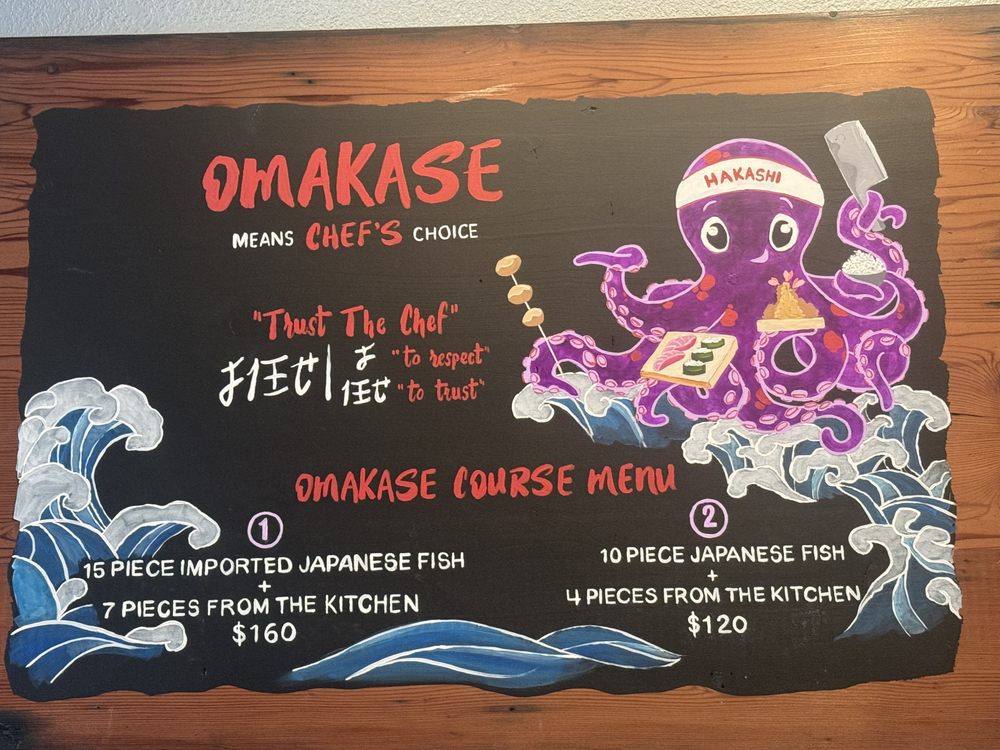 OMAKASE
MEANS CHEF'S CHOICE
HAKASHI
"Trust The Chef"
お任せ | お "to respect"
任せ "to trust"
OMAKASE COURSE MENU
1
15 PIECE IMPORTED JAPANESE FISH
+
7 PIECES FROM THE KITCHEN
$160
2
10 PIECE JAPANESE FISH
+
4 PIECES FROM THE KITCHEN
$120